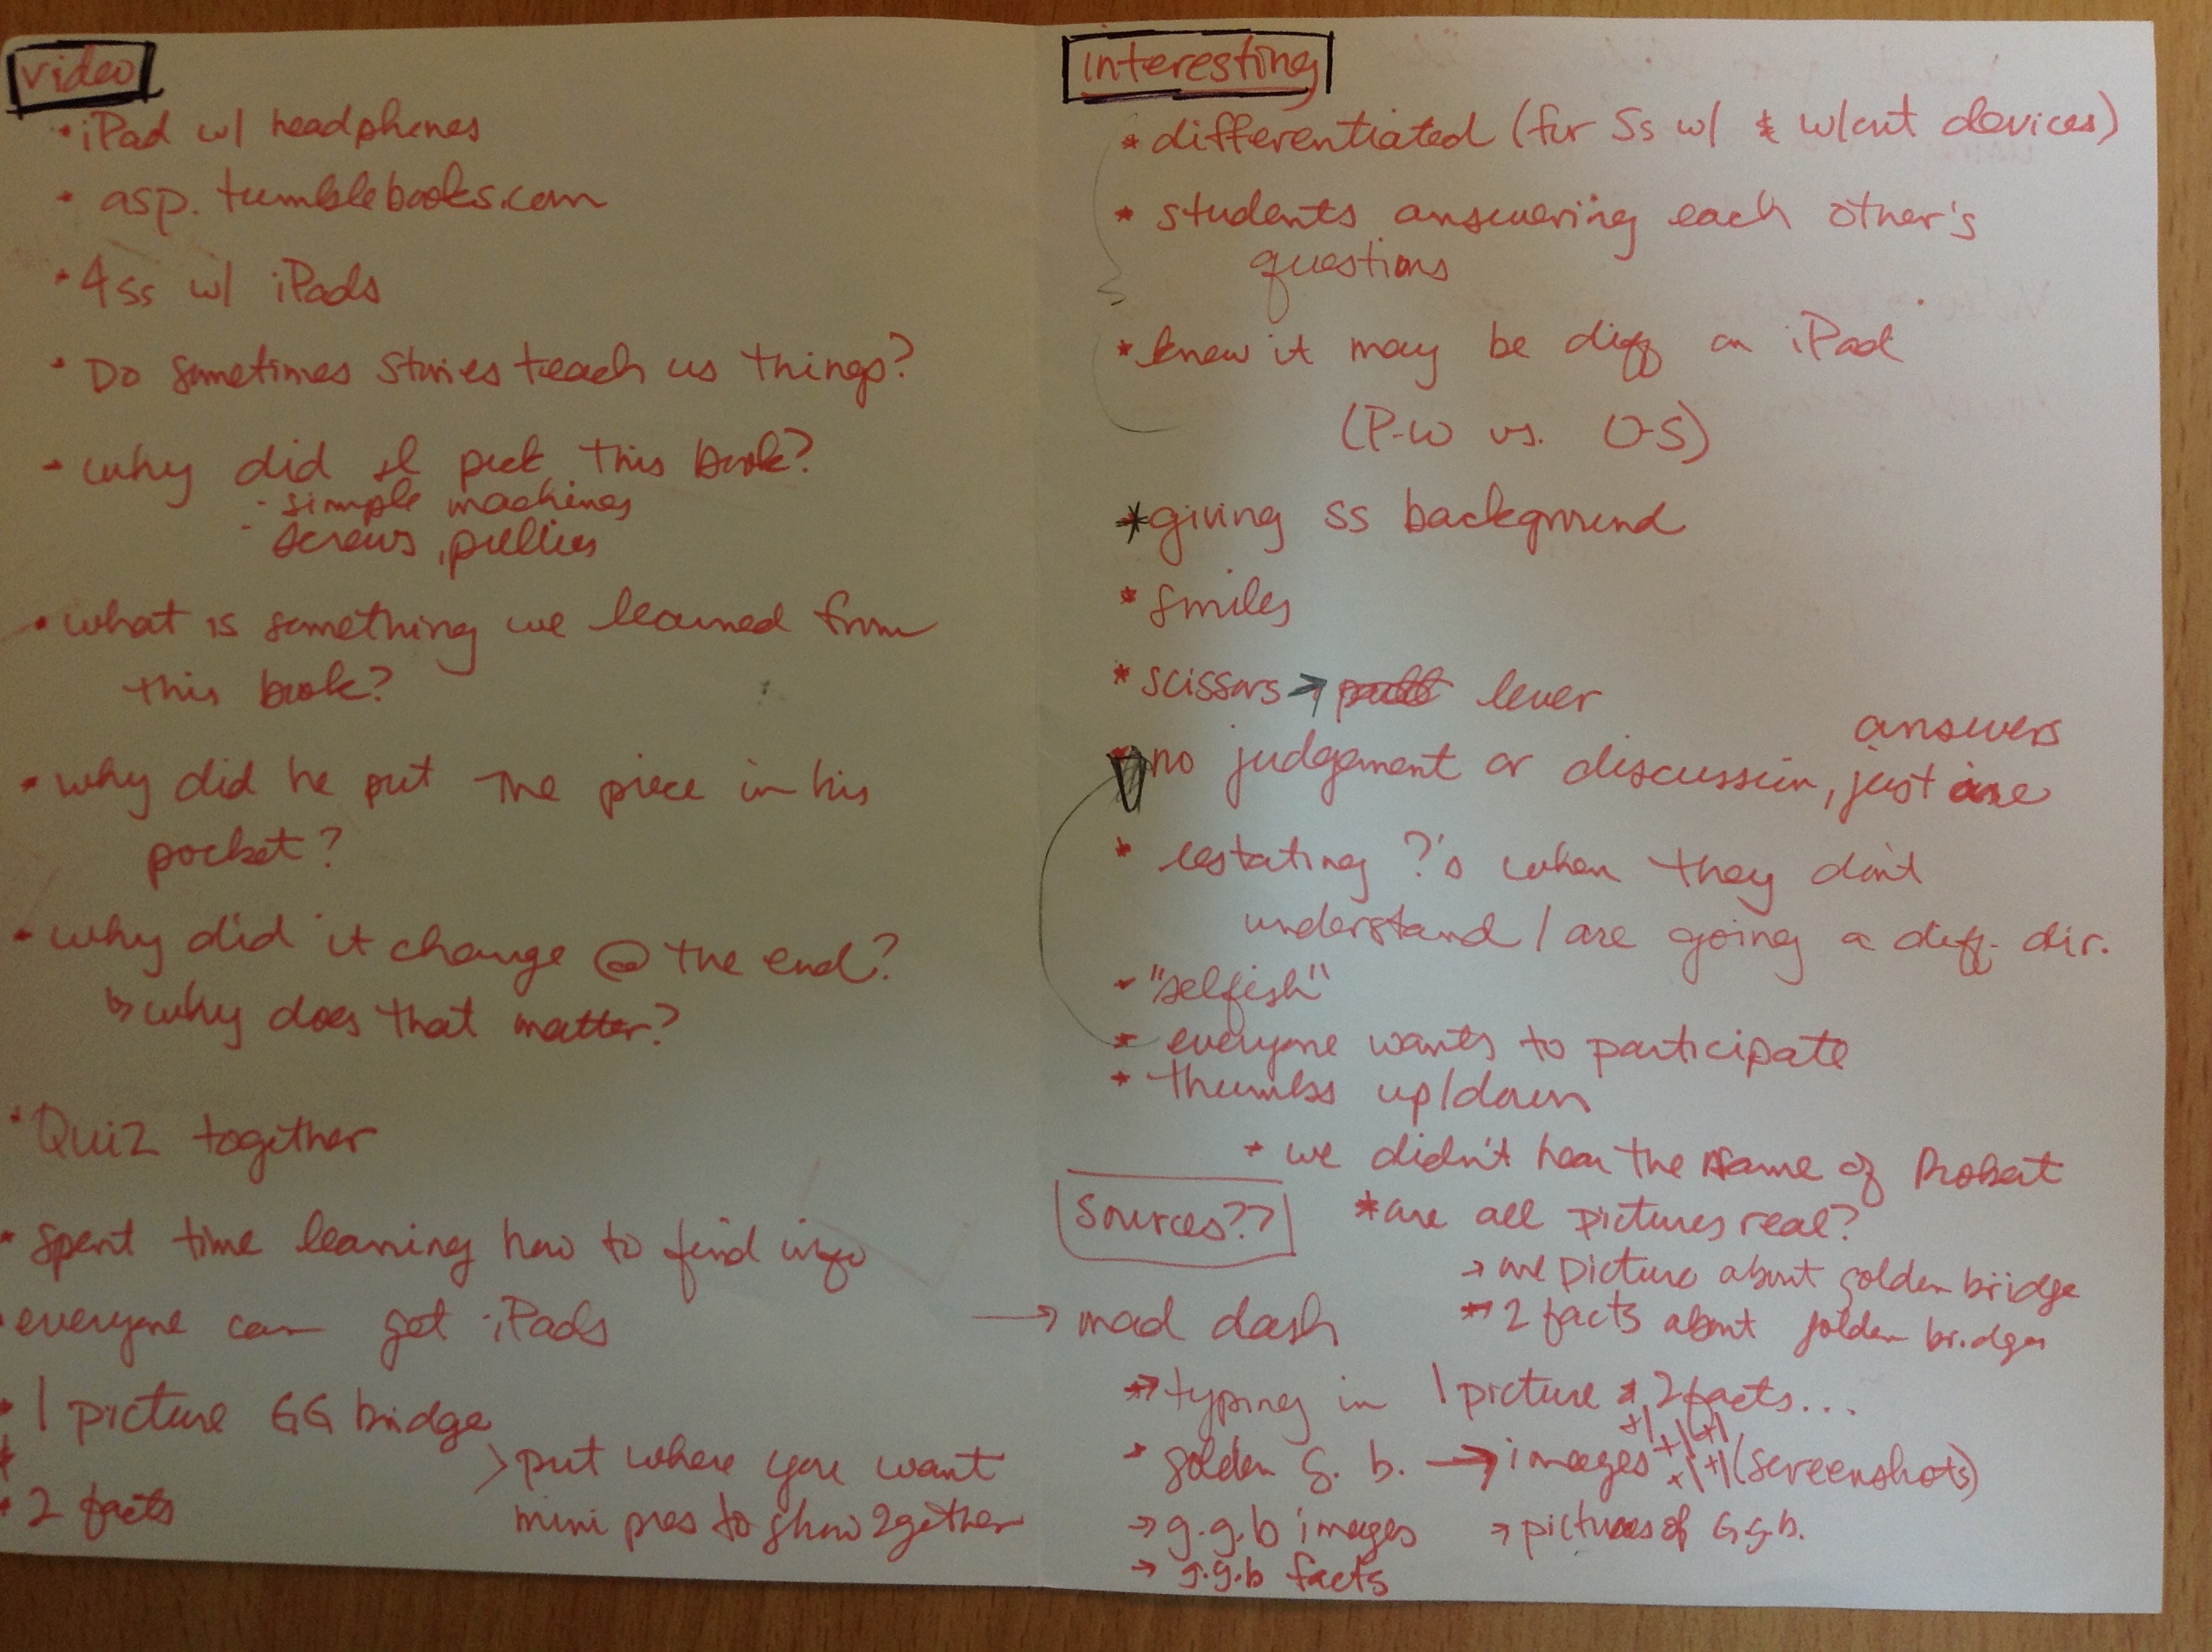 video
• iPad w/ headphones
• asp.tumblebooks.com
• 4 ss w/ iPads
• Do sometimes stories teach us things?
• why did I pick this book?
- simple machines
- screws, pullies
• what is something we learned from
this book?
• why did he put the piece in his
pocket?
• why did it change @ the end?
↳ why does that matter?
• Quiz together
• spent time learning how to find info
• everyone can get iPads
• 1 picture GG bridge
• 2 facts
> put where you want
mini pres to show 2gether
interesting
* differentiated (for Ss w/ & w/out devices)
* students answering each other's
questions
* knew it may be diff on iPad
(P-W vs. O-S)
* giving ss background
* smiles
* scissors → lever
answers
* no judgement or discussion, just
* restating ?'s when they don't
understand / are going a diff. dir.
* "selfish"
* everyone wants to participate
* thumbs up/down
* we didn't hear the name of
Sources??
* are all pictures real?
→ one picture about golden bridge
→ 2 facts about golden bridges
→ mad dash
→ typing in 1 picture & 2 facts...
* golden g. b. → images (screenshots)
→ g.g.b images
→ pictures of G.g.b.
→ g.g.b facts